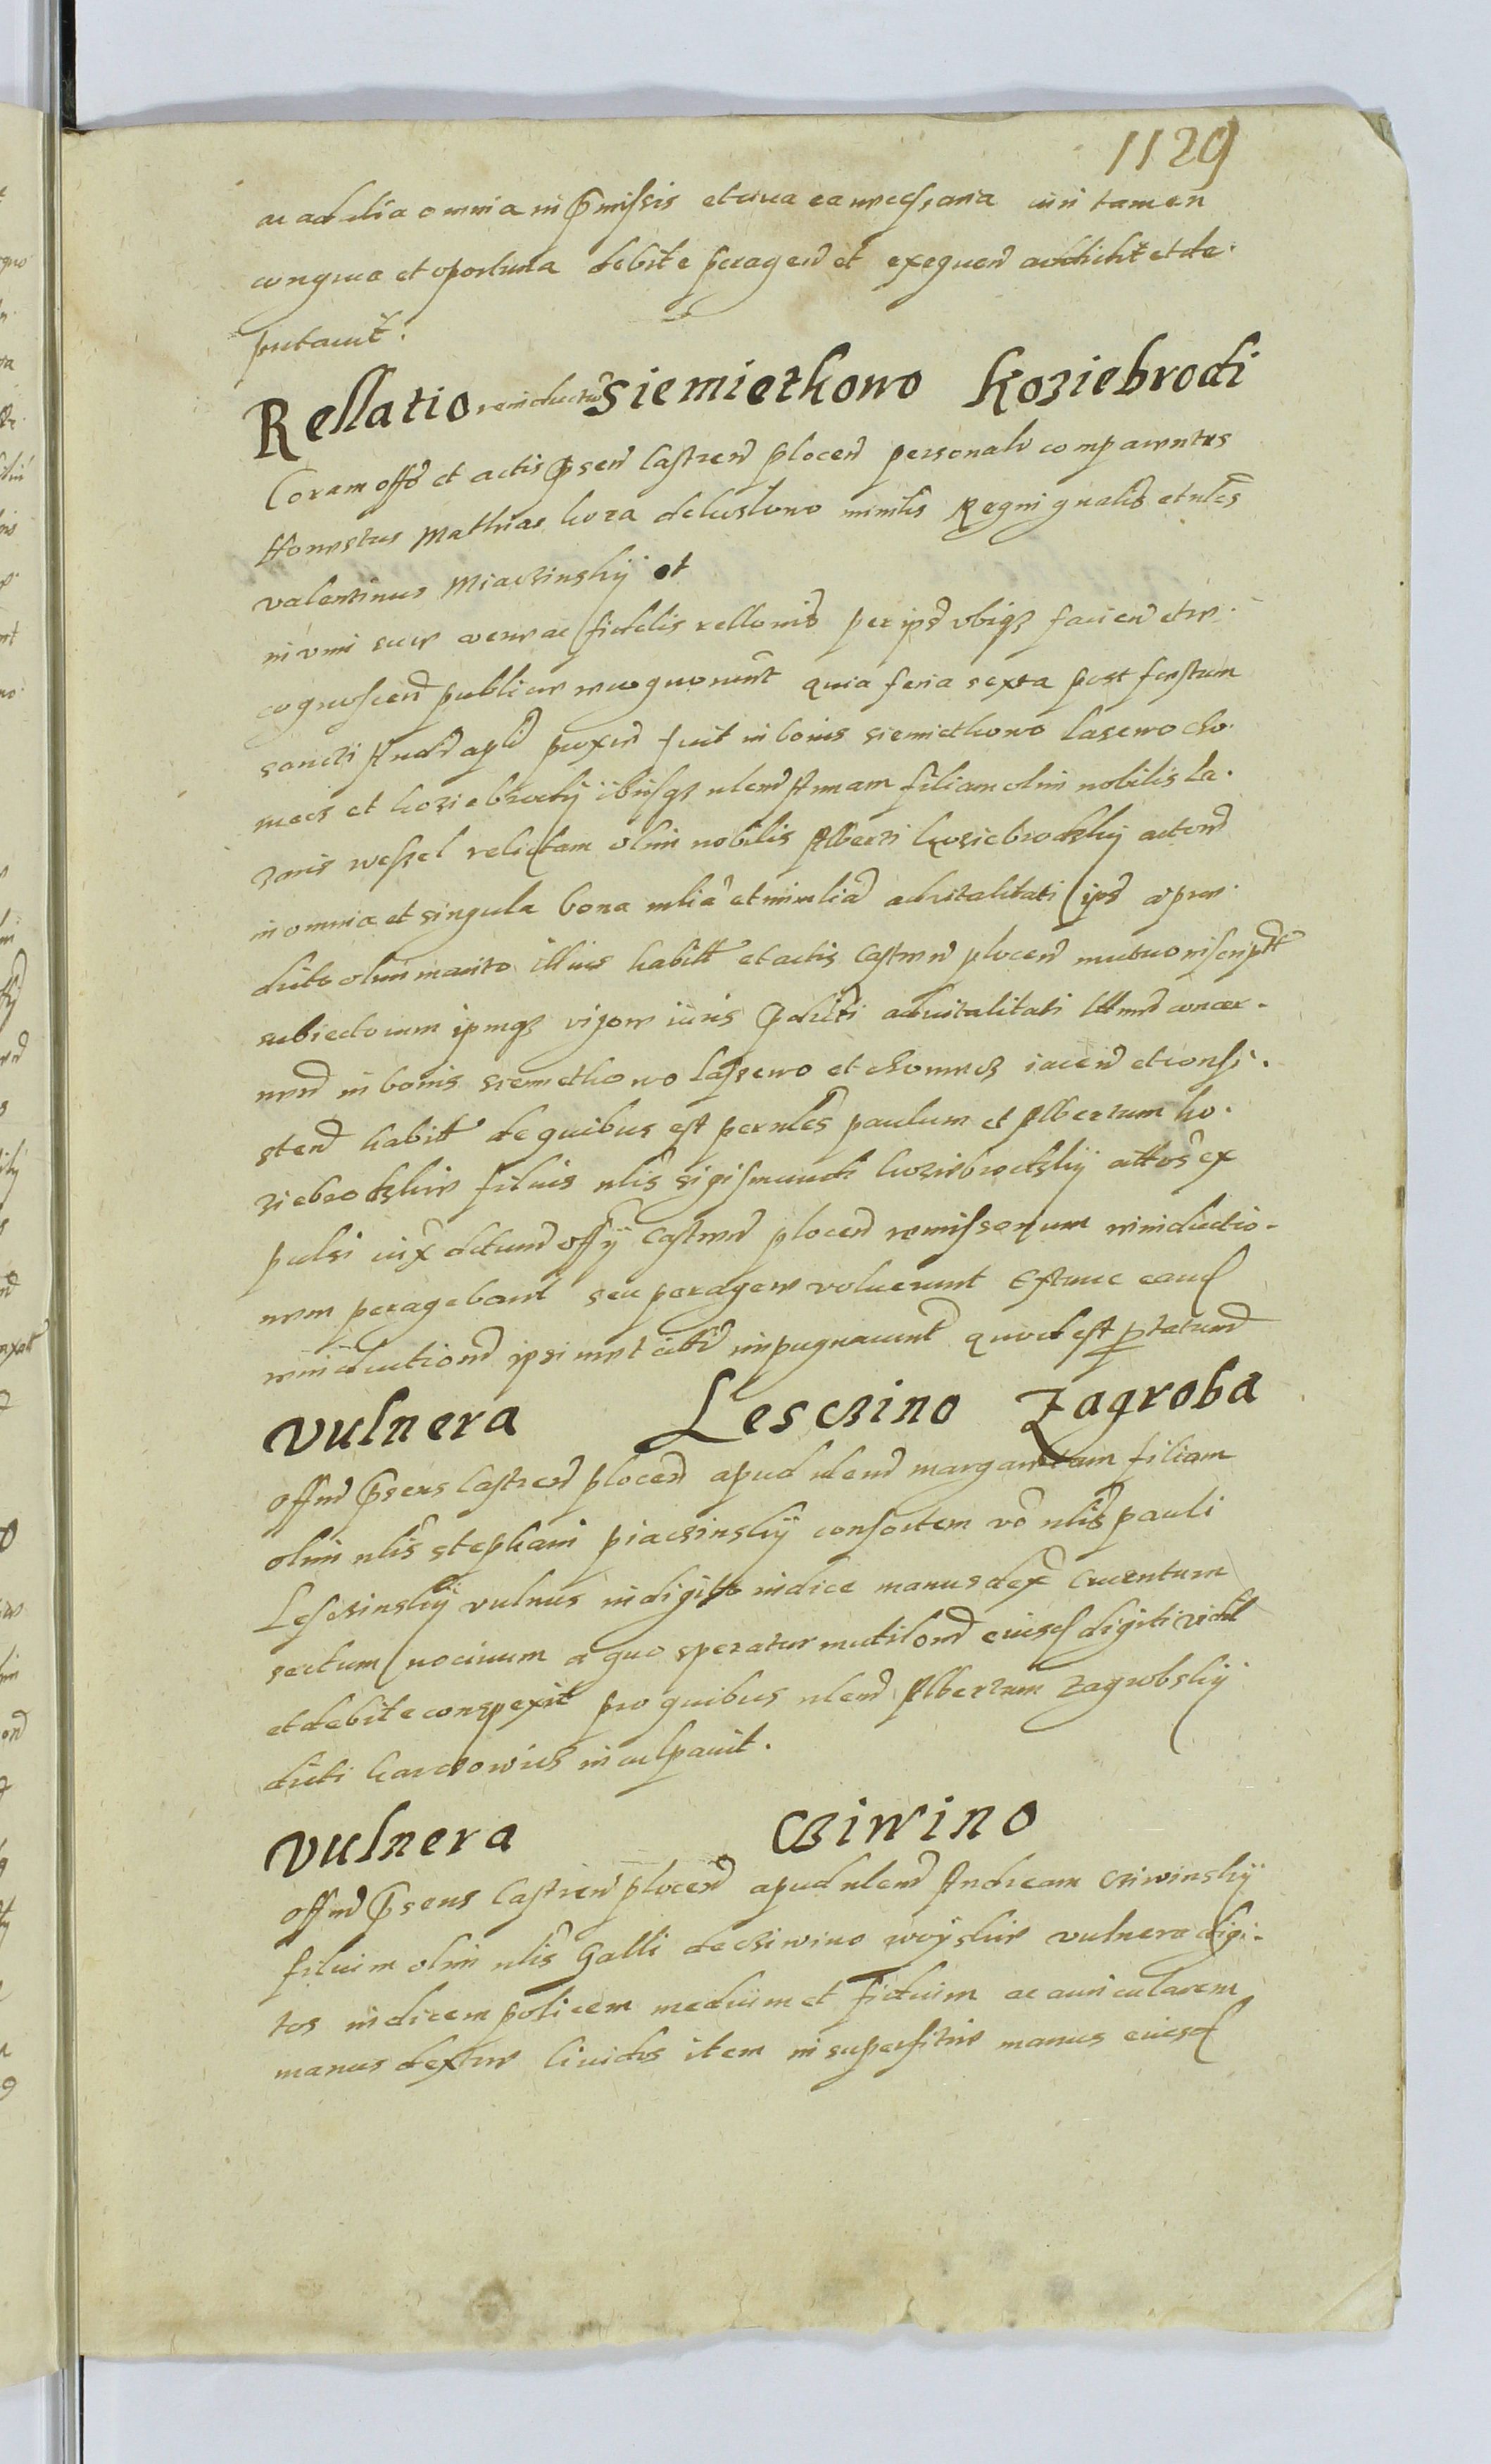 1129
ac ad alia omnia in pmissis et circa ea necessaria iuri tamen
congrua et oportuna debite peragend et exequend addidit et de-
putavit.
Rellatio reinductio Siemiethkowo Koziebrodi
Coram offo et actis psen Castren plocen personalr comparentes
Honestus Mathias koza de kuslowo minilis Regni gnalis et nles
valentinus Miaczinskij et
in vim sue vere ac fidelis rellonis per ipm ubiqz facien et re-
cognoscen publice recognoverunt quia feria sexta post festum
sancti Andr apli proxim fuit in bonis siemiethkowo laszewo cho-
mecz et koziebrodij ibiisqz nlem Annam filiam olim nobilis la-
zaris wessel relictam olim nobilis Alberti koziebrodzkij actore
in omnia et singula bona mlia et immlia advitalitati ips a pre-
dicto olim marito illius habitt et actis Castren plocen mutuo inscriptt
subiecto cum ipmqz vigore iuris pdicti advitalitati concer-
nen in bonis siemiethkowo lassewo et chomecz iacen et consi-
sten habitt de quibus est per nles paulum et Albertum ko-
ziebrodzkie filius nlis sigismundi koziebrodzkij attos ex
pulsi iux dctum offij Castren plocen remissorum reinductio-
nem peragebant seu peragere voluerunt Extunc eand
reinductionem ipsimet citti impugnaverunt quod est ptatum
Vulnera Lesczino Zagroba
Offm psens Castren plocen apud nlem margaretam filiam
olim nlis stephani piaczinskij consortem vo nlis pauli
Lesczinskij vulnus in digito indice manus dex cruentum
sectum nocivum a quo speratur mutilom eiusd digiti vidit
et debite conspexit pro quibus nlem Albertum zagrobskij
dicti karczowicz inculpavit.
Vulnera Cziwino
Offm psens Castren plocen apud nlem Andream cziwinskij
filium olim nlis Galli de cziwino woÿskie vulnera digi-
tos indicem policem medium et fidium ac auricularem
manus dextre lividos item in superfitie manus eiusd